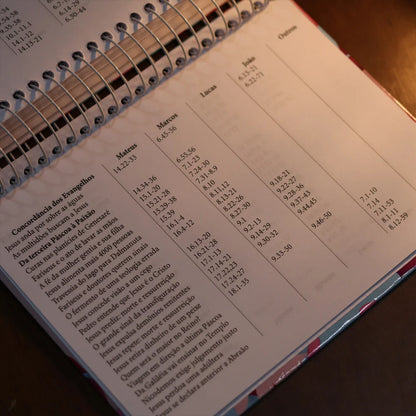 10.1-11.1
14.1-12
14.13-21
6.30-44
Concordância dos Evangelhos Mateus Marcos Lucas João Outros
Jesus anda por sobre as águas 14.22-33 6.45-56 6.15-21
As multidões buscam a Jesus 6.22-71
Da terceira Páscoa à Paixão
Curas nas planícies de Genesaré 14.34-36 6.55,56
Fariseus e o ato de lavar as mãos 15.1-20 7.1-23
A fé da mulher gentia e sua filha 15.21-28 7.24-30
Jesus alimenta mais 4000 pessoas 7.31, 8.9
Travessia do lago para Dalmanuta 15.39 8.10
Fariseus e doutores querem sinais 16.1-4 8.11,12
O fermento de uma ideologia errada 16.4-12 8.13-21
Jesus concede visão a um cego 8.22-26
Pedro entende que Jesus é o Cristo 16.13-20 8.27-30 9.18-21
Jesus prediz morte e ressurreição 16.21-28 9.1 9.22-27
O grande sinal da transfiguração 17.1-13 9.2-13 9.28-36
Jesus expulsa demônios renitentes 17.14-21 9.14-29 9.37-43
Jesus repete morte e ressurreição 17.22,23 9.30-32 9.44,45
Jesus retira dinheiro de um peixe 17.24-27
Quem será o maior no Reino? 18.1-35 9.33-50 9.46-50
Viagem em direção à última Páscoa 7.1-10
Da Galileia vai ensinar no Templo 7.14
Nicodemos exige julgamento justo 7.11-53
Jesus perdoa uma adúltera 8.1-11
que se declara anterior a Abraão 8.12-59